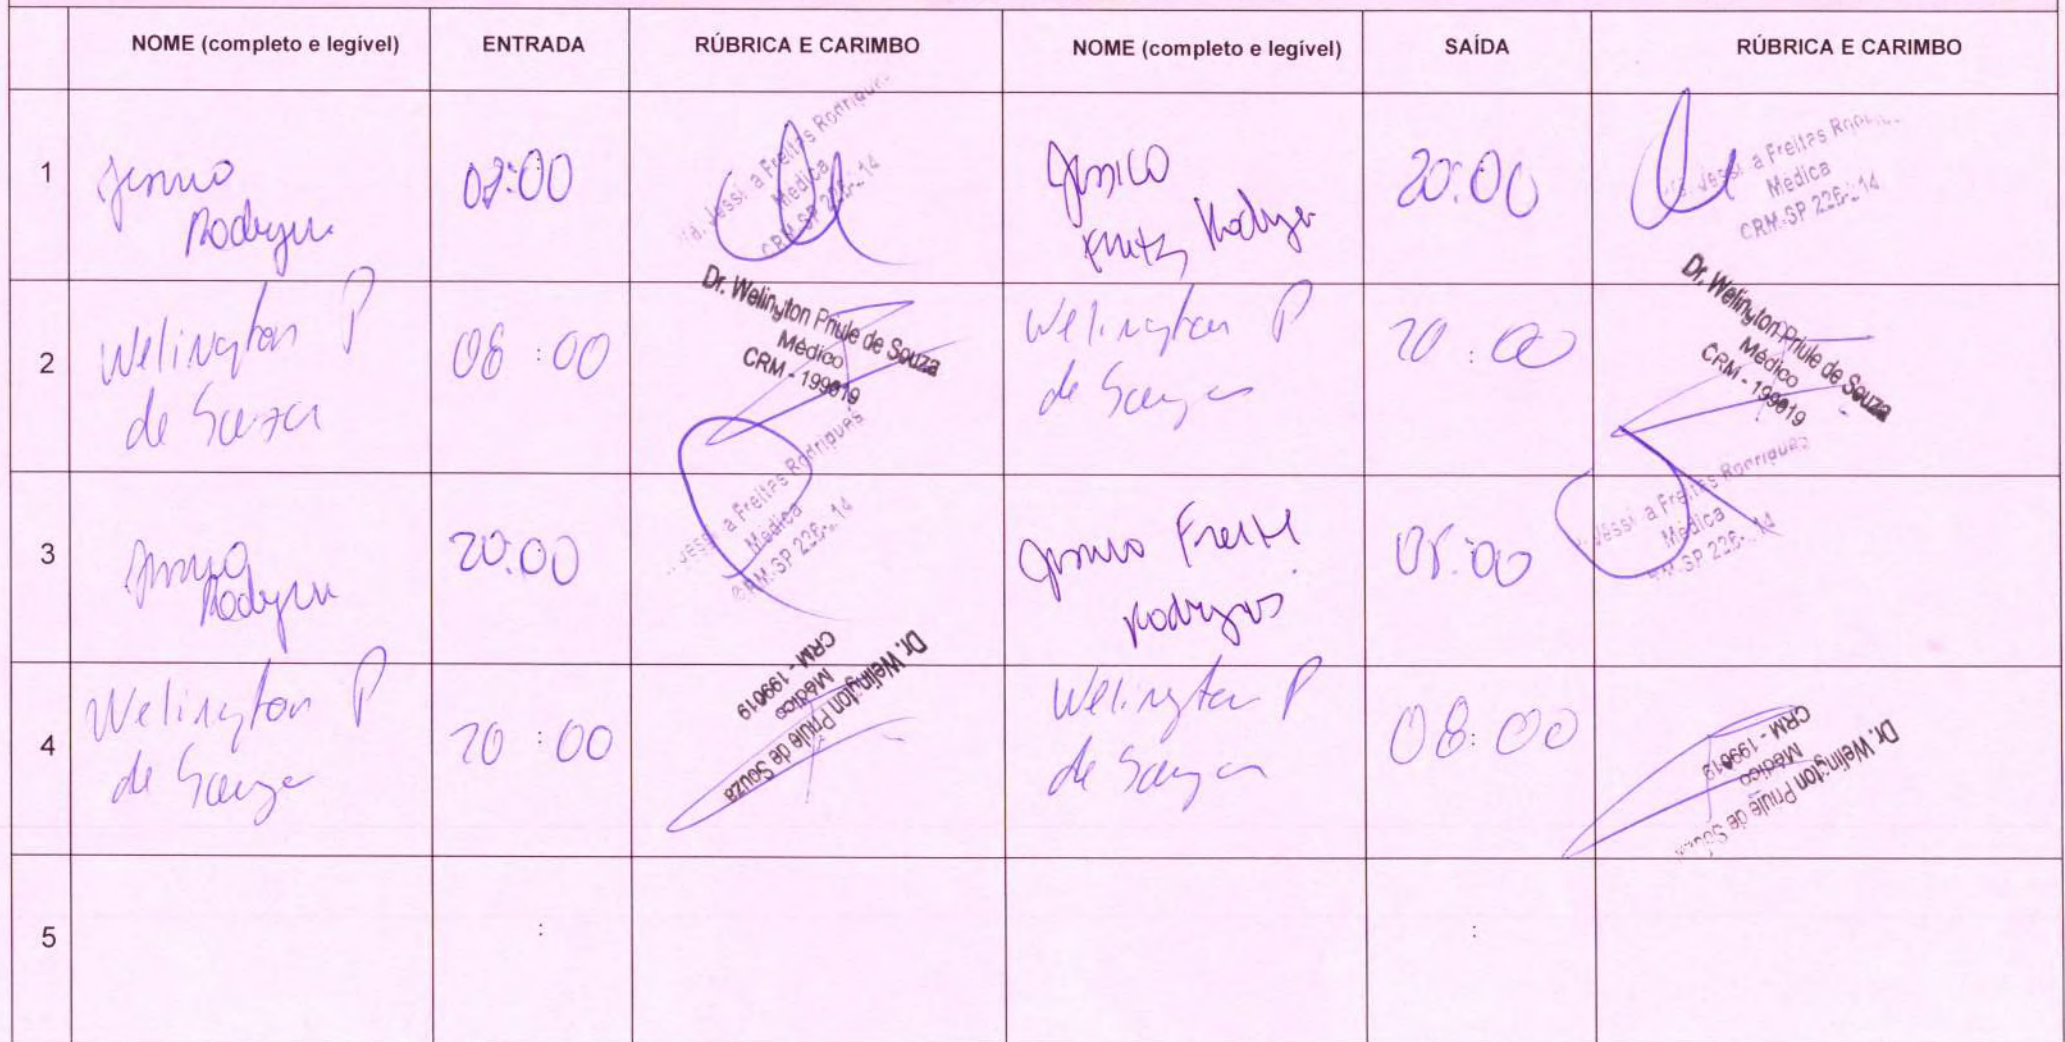 NOME (completo e legível) ENTRADA RÚBRICA E CARIMBO NOME (completo e legível) SAÍDA RÚBRICA E CARIMBO
1
Rodrigues
Jessi a Freitas Rodrigues
Médica
CRM-SP
Jessica
Rodrigues
20:00
Jessi a Freitas
Médica
CRM-SP
2
Welington P
de Souza
08:00
Dr. Welington Priule de Souza
Médico
CRM - 199619
Welington P
de Souza
20:00
Dr. Welington Priule de Souza
Médico
CRM - 199619
3
Rodrigues
20:00
Jessi a Freitas Rodrigues
Médica
CRM-SP
Rodrigues
08:00
Jessi a Freitas Rodrigues
Médica
SP
4
Welington P
de Souza
20:00
Dr. Welington Priule de Souza
Médico
CRM - 199619
Welington P
de Souza
08:00
Dr. Welington Priule de Souza
Médico
CRM - 199619
5
:
: